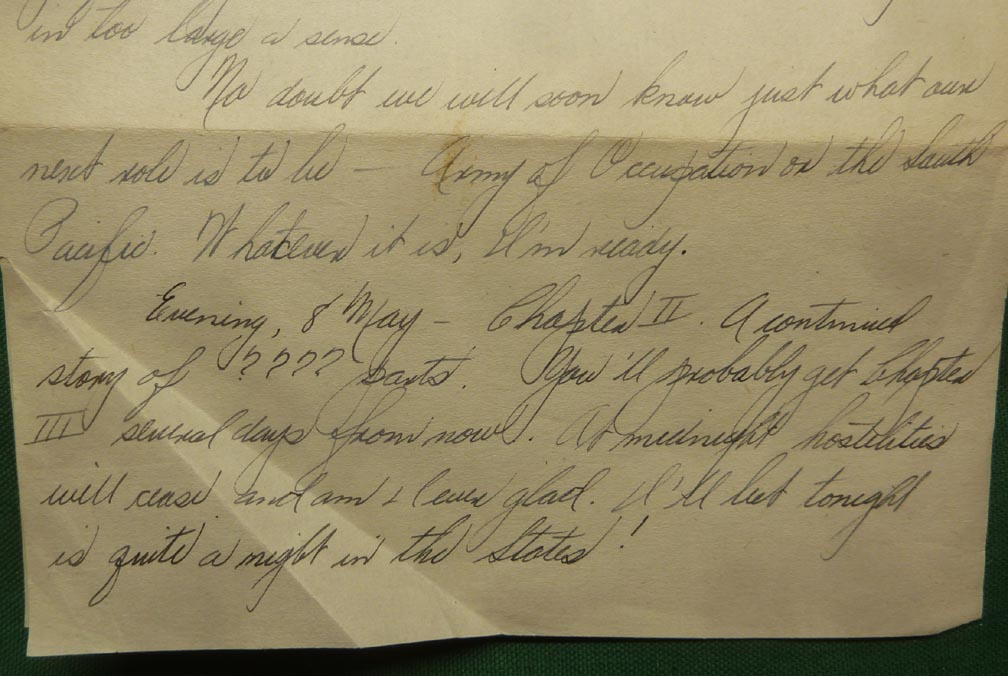 in too large a sense.
No doubt we will soon know just what our
next role is to be — Army of Occupation or the South
Pacific. Whatever it is, I'm ready.
Evening, 8 May – Chapter II. A continued
story of ???? parts. You'll probably get Chapter
III several days from now. At midnight hostilities
will cease and am I ever glad. I'll bet tonight
is quite a night in the States!